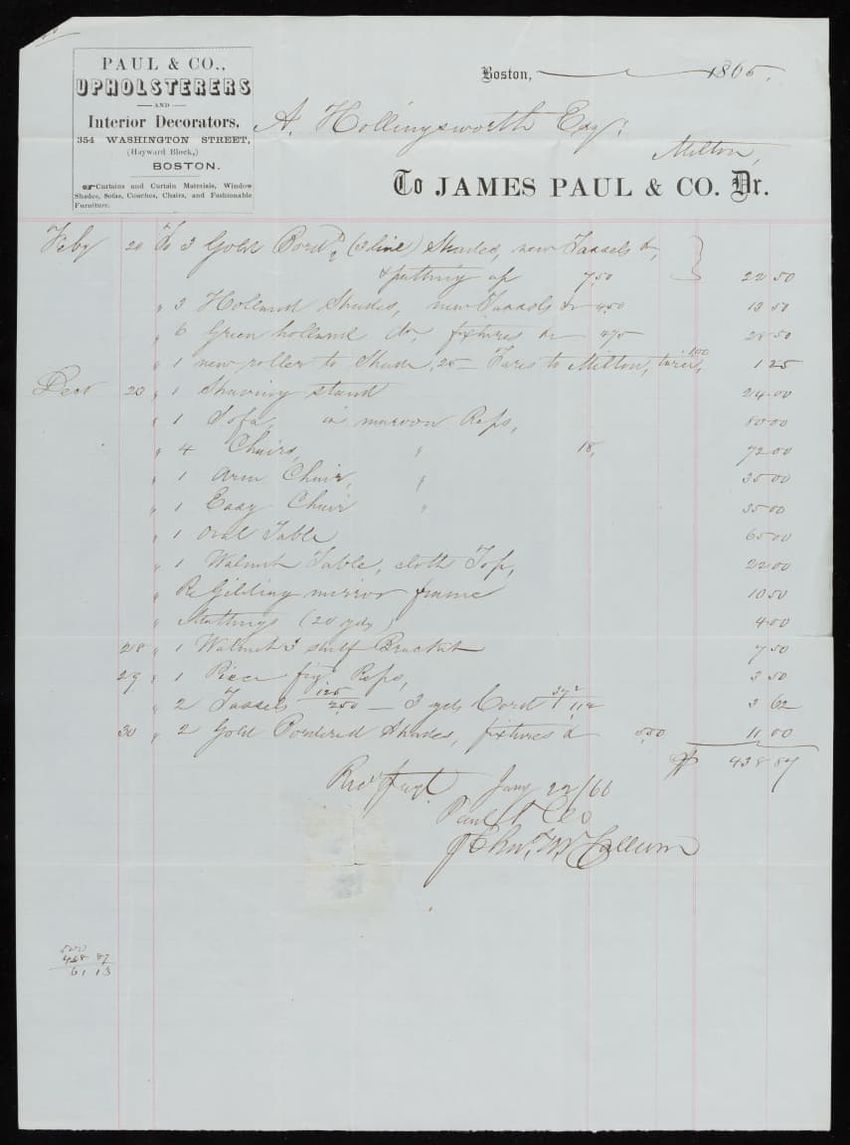 PAUL & CO.,
UPHOLSTERERS
AND
Interior Decorators,
354 WASHINGTON STREET,
(Hayward Block,)
BOSTON.
Curtains and Curtain Materials, Window
Shades, Sofas, Couches, Chairs, and Fashionable
Furniture.
Boston, 1865.
A. Hollingsworth Esqr.
Milton,
To JAMES PAUL & CO. Dr.
Feby 20 To 3 Gold Bord. (3 line) Shades, new Tassels &c,
& putting up 7.50 22 50
" 3 Holland Shades, new Tassels &c 4.50 13 50
" 6 Green holland do, fixtures &c 4.75 28 50
" 1 new roller to Shade, 25 — Fares to Milton, twice, 1.00 1 25
Dect 20 " 1 Shaving stand 24 00
" 1 Sofa, in maroon Reps, 80 00
" 4 Chairs, " 18, 72 00
" 1 Arm Chair, " 35 00
" 1 Easy Chair " 35 00
" 1 Oval Table 65 00
" 1 Walnut Table, cloth Top, 22 00
" Re Gilding mirror frame 10 50
" (20 yds) 4 00
28 " 1 Walnut 3 shelf Bracket 7 50
29 " 1 Piece figd Reps, 3 50
" 2 Tassels 1.25 2.50 — 3 yds Cord 37½ 1.12 3 62
30 " 2 Gold Bordered Shades, fixtures & 5.50 11 00
$ 438 87
Recd payt Jany 22/66
Paul & Co
McCallum
500
438 87
61 13